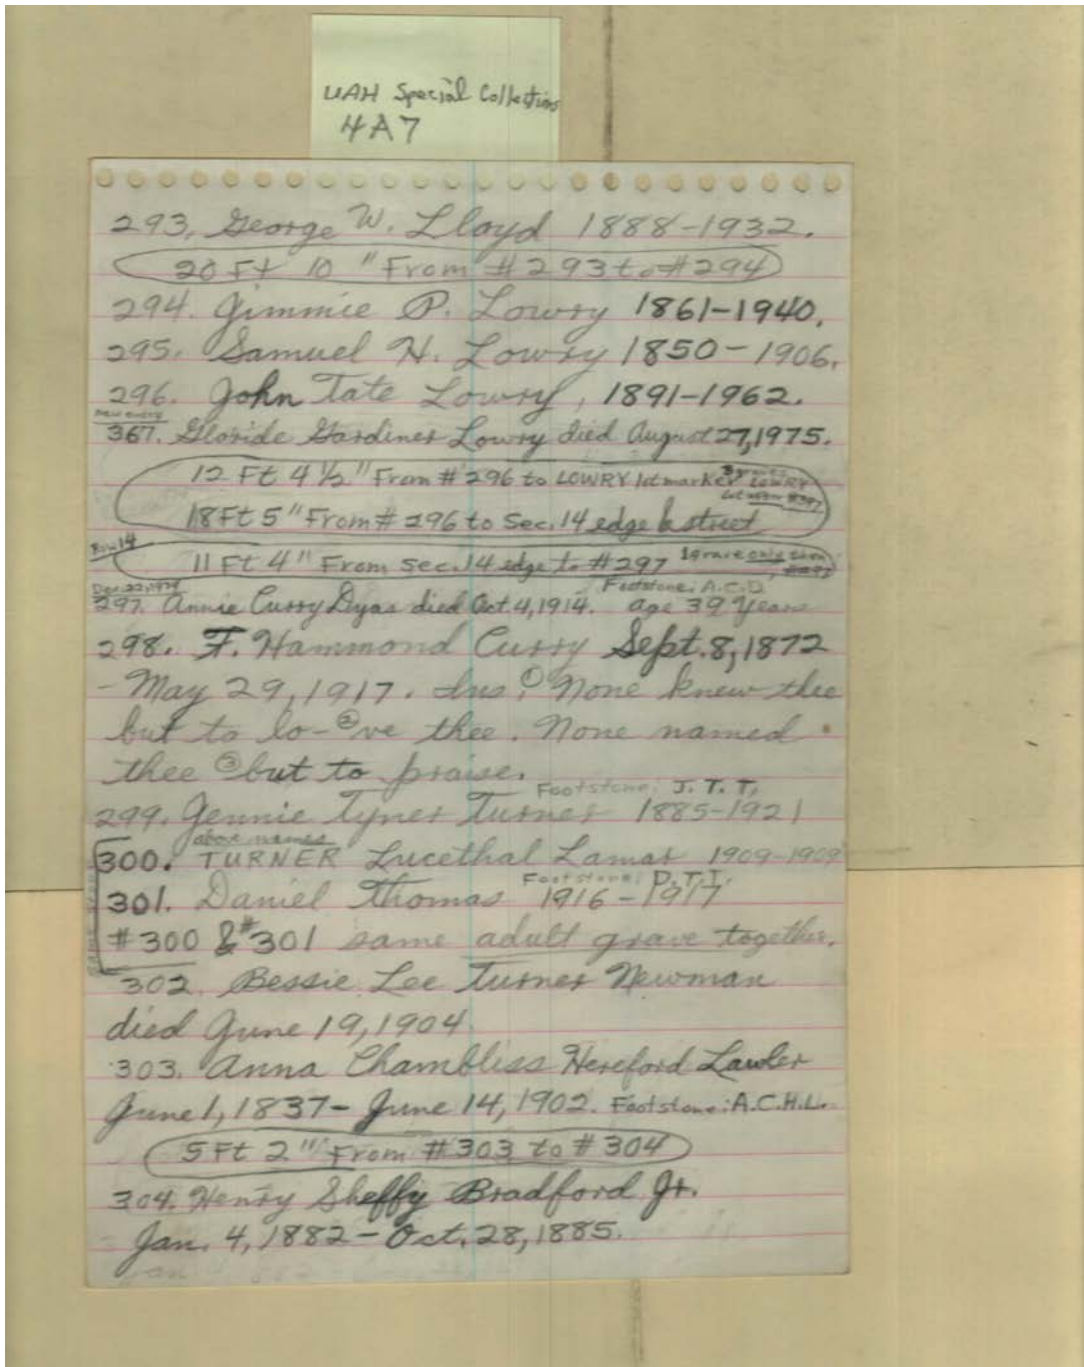 UAH Special Collections
4A7
293. George W. Lloyd 1888-1932.
20 Ft 10" From #293 to #294
294. Jimmie P. Lowry 1861-1940.
295. Samuel H. Lowry 1850-1906.
296. John Tate Lowry, 1891-1962.
new entry
367. Gardiner Lowry died August 27, 1975.
12 Ft 4 1/2" From #296 to LOWRY lot marker
3 graves LOWRY
18 Ft 5" From #296 to Sec. 14 edge & street
Row 14
11 Ft 4" From Sec. 14 edge to #297 1 grave only then
Dec. 22, 1979
Footstone: A.C.D.
297. Annie Curry Dyas died Oct. 4, 1914. age 39 years
298. F. Hammond Curry Sept. 8, 1872
- May 29, 1917. Ins: ① None knew thee
but to lo- ② ve thee. None named
thee ③ but to praise.
Footstone: J. T. T.
299. Jennie Tyner Turner 1885-1921
above names
300. TURNER Lucethal Lamar 1909-1909
Footstone: D.T.T.
301. Daniel Thomas 1916-1917
same stone
#300 & #301 same adult grave together.
302. Bessie Lee Turner Newman
died June 19, 1904
303. Anna Chambliss Hereford Lawler
June 1, 1837- June 14, 1902. Footstone: A.C.H.L.
5 Ft 2" From #303 to #304
304. Henry Sheffy Bradford Jr.
Jan. 4, 1882 - Oct. 28, 1885.